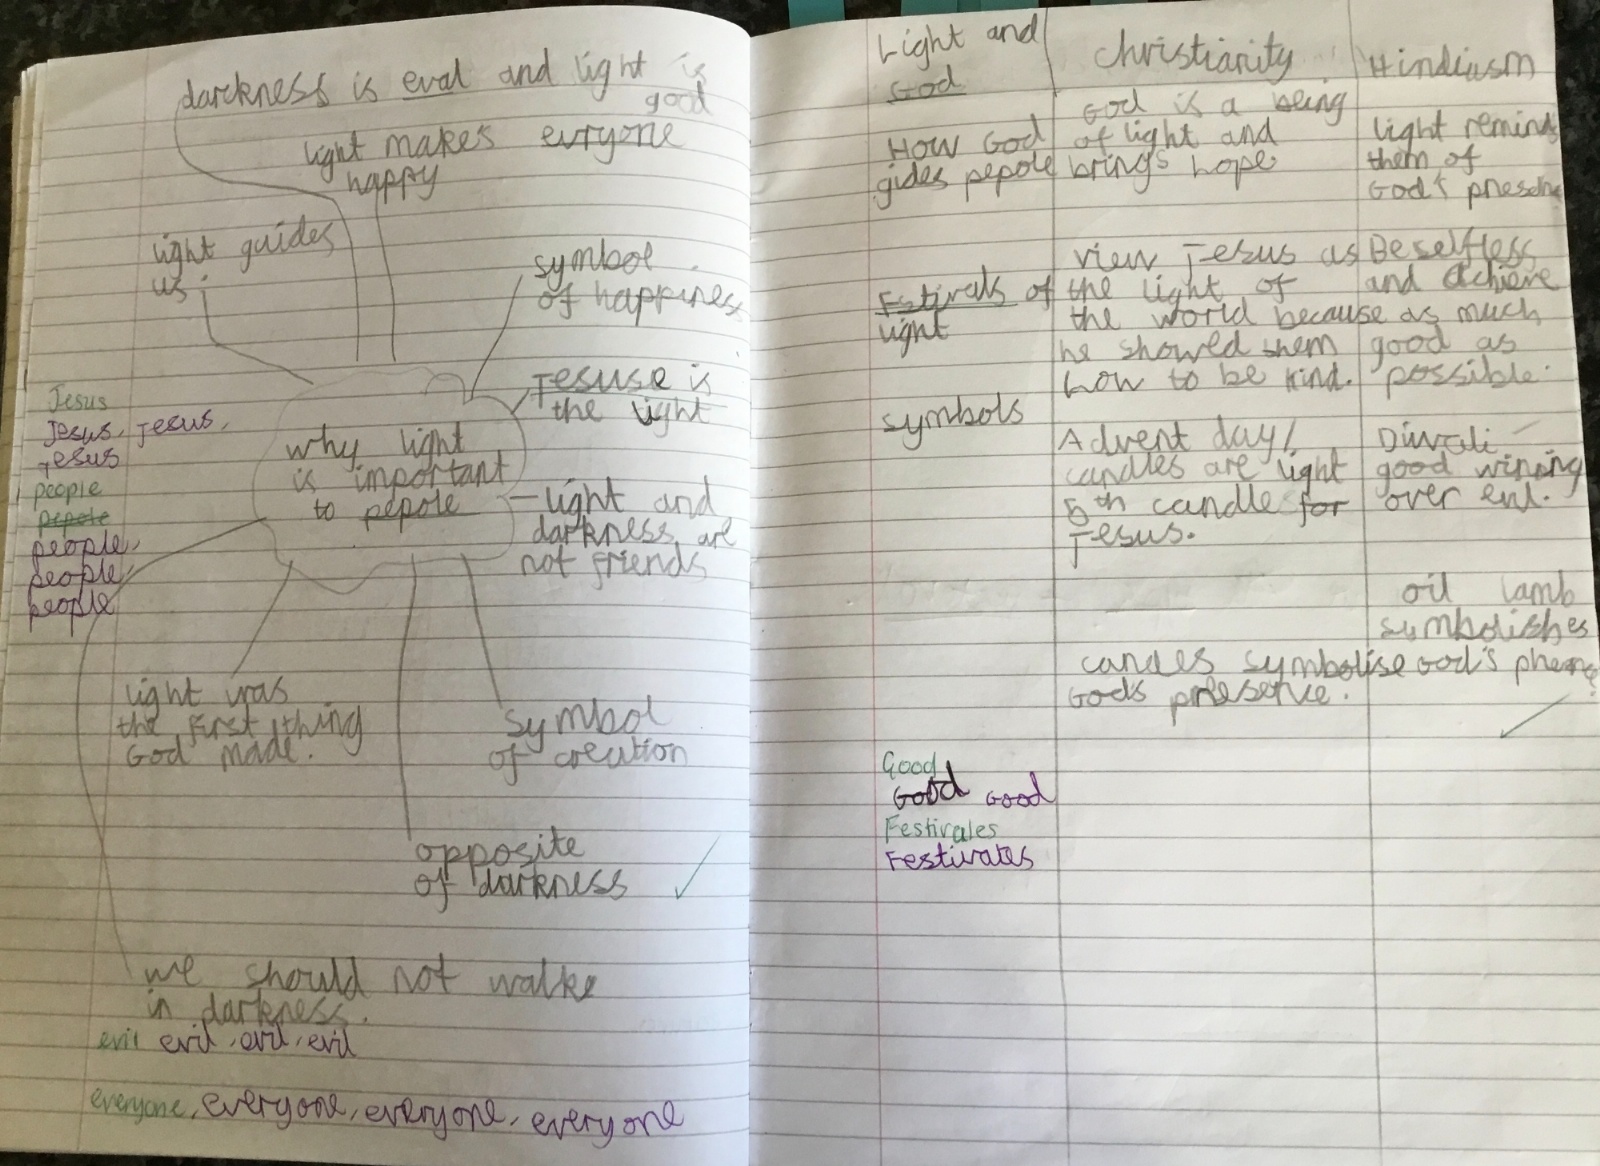 darckness is eval and light is
good
light makes evryone
happy
light guides
us
symbol
of happiness
Jesuse is
the light
Jesus
Jesus, Jesus,
Jesus
people
pepole
people,
people,
people
why light
is important
to pepole
light and
darkness are
not friends
light was
the first thing
God made.
symbol
of creation
opposite
of darkness
we should not walke
in darkness.
evil evil, evil, evil
everyone, everyone, everyone, everyone
Light and
God
How God
gides pepole
Festivals of
light
symbols
Good
Good Good
Festivales
Festivales
Christianity
God is a being
of light and
brings hope
view Jesus as
the light of
the world because
he showed them
how to be kind.
Advent day/
candles are light
5th candle for
Jesus.
candes symbolise
God's presence.
Hindiusm
light reminds
them of
God's presene
Be selfless
and achieve
as much
good as
possible.
Diwali
good wining
over evil.
oil lamb
symbolishes
God's